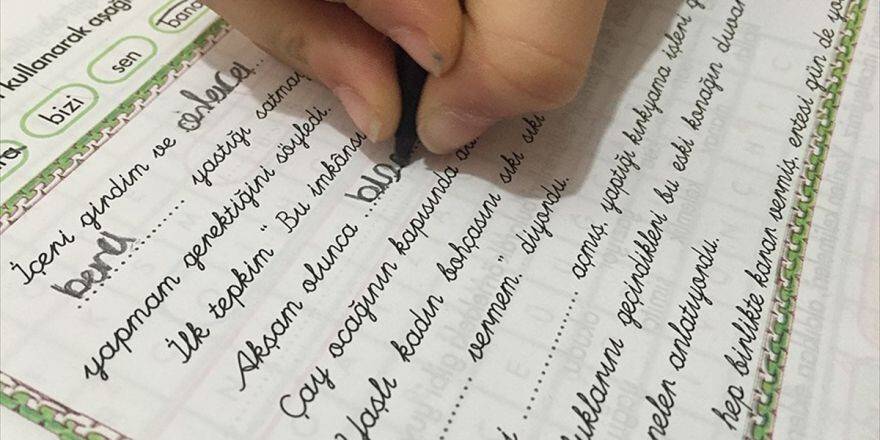 kullanarak aşağı
bizi
sen
bana
İçeri girdim ve
yastığı satmar
yapmam gerektiğini söyledi.
İlk tepkim " Bu imkânsı
Akşam olunca
Çay ocağının kapısında
Yaşlı kadın bohçasını sıkı sıkı
vermem." diyordu.
açmış, yaptığı kırkyama işleri
geçindikleri bu eski konağın duvar
neler anlatıyordu.
hep birlikte karar vermiş, ertesi gün de yo